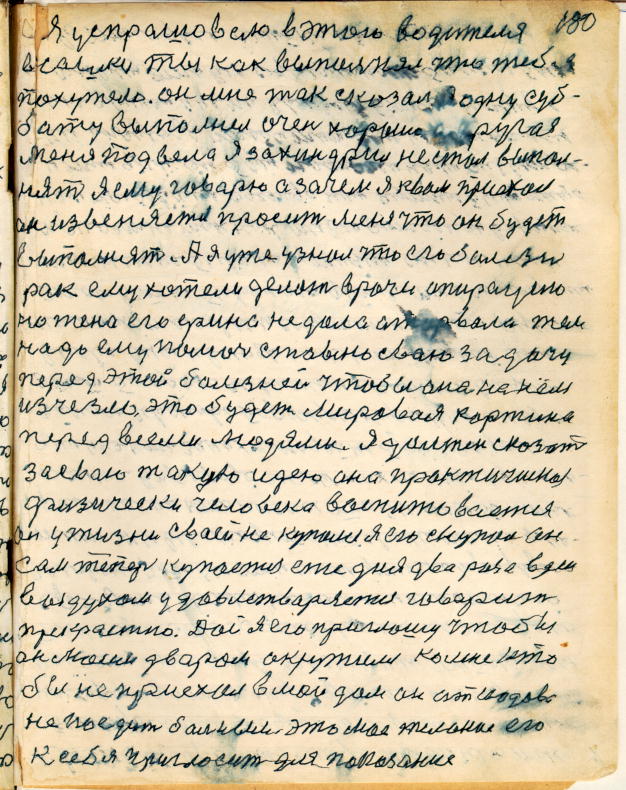 180
Я успрашовсю в этого водителя
в сашки ты как выполнял что тебе
похутело. он мне так сказал водну суб-
бату выполнил очен хорошо ругая
меня подвела я захиндрил нестал выпол-
нят я ему говарю а зачем я квам приехал
он извеняется просит меня что он будет
выполнят. А я уже узнал что его болезн
рак ему хотели делат врачи операцыю
но жена его ерина недала
надо ему помоч ставлю сваю задачу
перед этой болезней чтобы она на нём
изчезла. это будет мировая картина
перед всеми людями. Я должен сказат
засваю такую идею она практична
физически человека воспитовается
он ужизни сваей не купался я его скупал он
сам тепер купается еже дня два раза
воздухом удовлетваряется говарит
прекрастно. Дай я его приглашу чтобы
он сваим дваром окружил комне что
бы не приехал вмой дом он
не поедит болным это мое желание его
к себя пригласит для показание